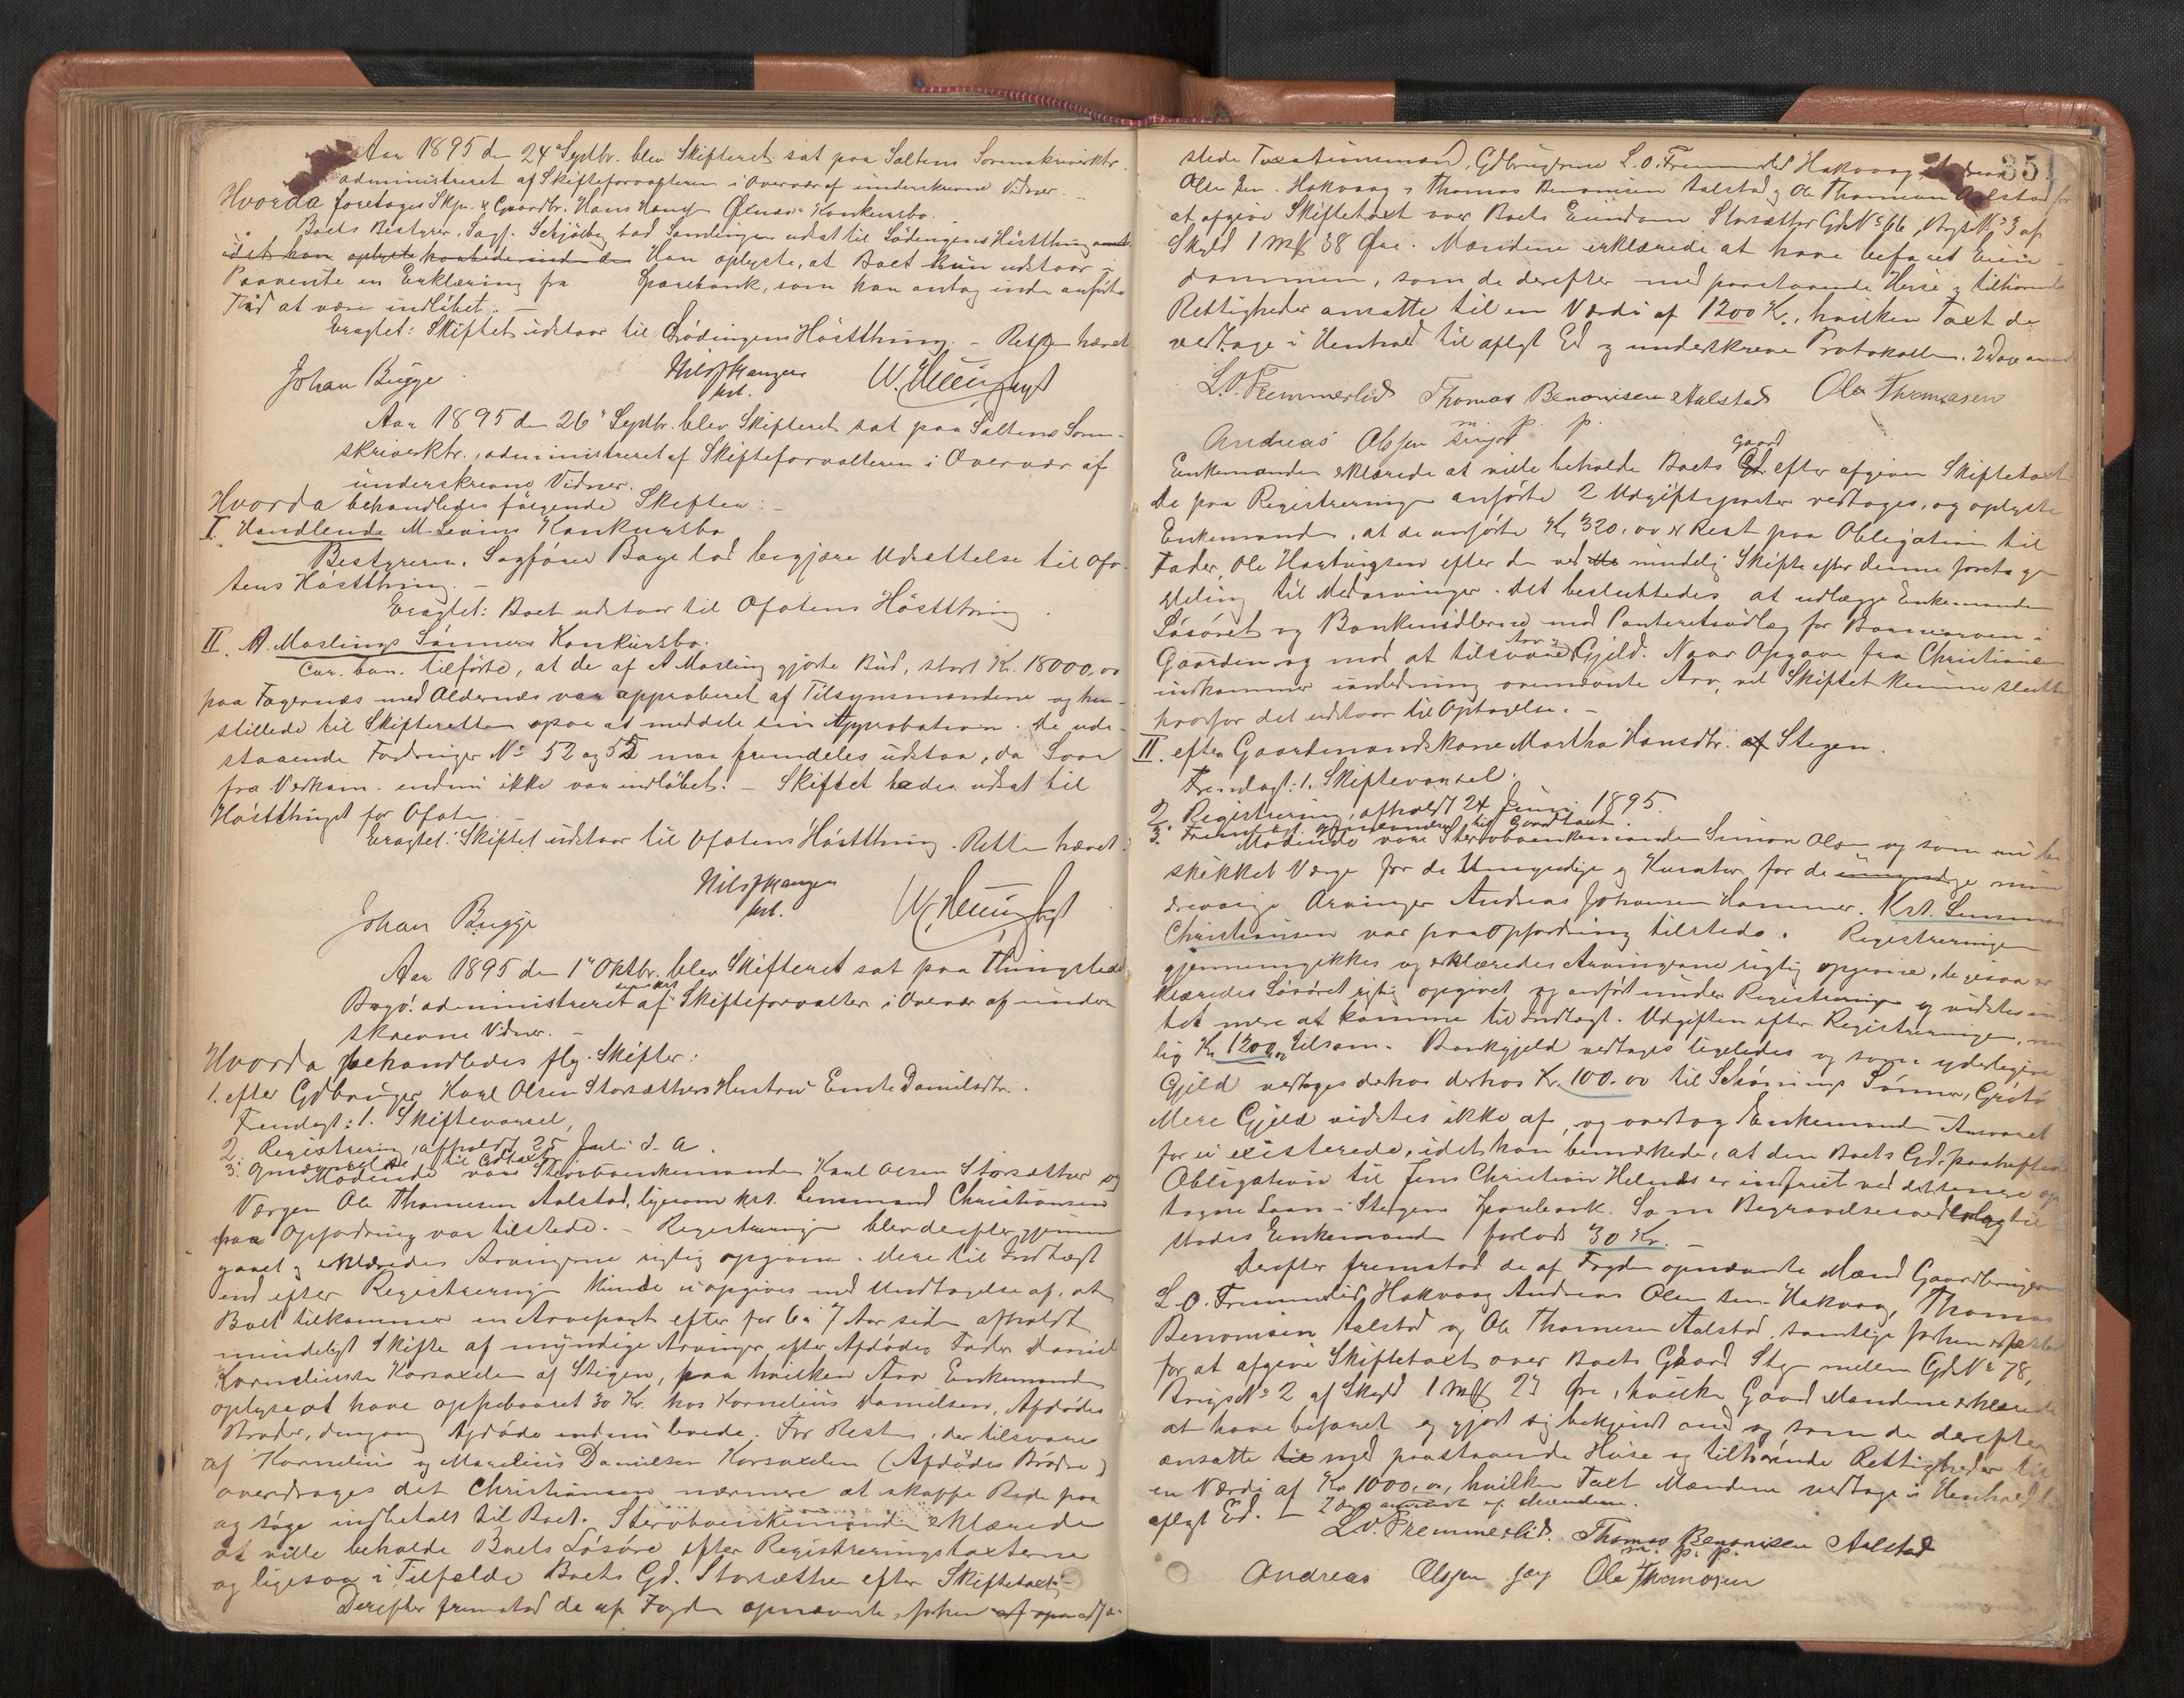 Aar 1895 den 24de Septbr. blev Skifteret sat paa Saltens Sorenskriverktr.
administreret af Skifteforvalteren i Overvær af underskrevne Vidner.
Hvorda foretoges Skp. & Gaardbr. Hans Hansen Øknæs Konkursbo.
Boets Bestyrer, Sagf. Schjölberg bad Samlingen udsat til Lödingens Höstthing
idet han oplyste Han oplyste, at Boet kun udstaar i
Paavente en Erklæring fra Sparebank, som han antog inden anførte
Tid at være indløbet. –
Eragtet: Skiftet udstaar til Lødingens Höstthing. – Retten hævet
Johan Bugge Nils Hangen W. Heun
fst. Sagf
Aar 1895 den 26de Septbr. blev Skifteret sat paa Saltens Soren-
skriverktr., administreret af Skifteforvalteren i Overvær af
underskrevne Vidner.
Hvorda behandledes følgende Skifter: –
I. Handlende M. Levins Konkursbo
Bestyreren, Sagfører Bage lod begjære Udsættelse til Ofo-
tens Høstthing. –
Eragtet: Boet udstaar til Ofotens Høstthing.
II. A. Maslings Sønners Konkursbo.
Cur. bon. tilførte, at de af A Masling gjorte Bud, stort K. 18000,00
paa Fagernæs med Oldernæs var approberet af Tilsynsmændene og hen-
stillede til Skifteretten ogsaa at meddele sin Approbation. De ude-
staaende Fordringer No 52 og 55 maa fremdeles udstaa, da Svar
fra Vedkom. endnu ikke var indløbet. – Skiftet bades udsat til
Høstthinget for Ofoten. –
Eragtet: Skiftet udstaar til Ofotens Høstthing. Retten hævet.
Nils Hangen
Johan Bugge fst. W. Heun Sagf
Aar 1895 den 1ste Oktbr. blev Skifteret sat paa Thingstedet
Bogö. administreret af Skifteforvalter i Overvær af under-
skrevne Vidner. –
Hvorda behandledes flg. Skifter:
1. efter Gdbruger Karl Olsen Storsæthers Hustru Ernte Danielsdtr.
Fremlagt: 1. Skiftevarsel,
2. Registrering, afholdt 25 Juli d. A.
3. Opnævnelse til Gdtaxt
Mødende var Stervboenkemanden Karl Olsen Storsæther og
Værgen Ole Thomesen Aalstad, ligesom kst. Lensmand Christiansen
paa Opfordring var tilstede. – Registreringen blev derefter gjennem-
gaaet og erklæredes Arvingerne rigtig opgivne. Mere til Indtægt
end efter Registrering kunde ei opgives med Undtagelse af, at
Boet tilkommer en Arvepart efter for 6 a 7 Aar siden afholdt
mindeligt Skifte af myndige Arvinger efter Afdødes Fader Daniel
Korneliussen Korsaxelen af Stegen, paa hvilken Arv Enkemanden
oplyse at have oppebaaret 30 Kr. hos Kornelius Danielsen, Afdødes
Broder, dengang Afdøde endnu levede. For Resten, der tilsvares
af Kornelius og Marelius Danielsen Korsaxelen (Afdødes Brødre)
overdroges det Christiansen nærmere at skaffe Rede paa
og søge indbetalt til Boet. Stervboenkemanden erklærede
at ville beholde Boets Løsøre efter Registreringstaxterne
og ligesaa i Tilfælde Boets Gd. Storsæther efter Skiftetaxt.
Derefter fremstod de af Fogden opnævnte, forhen
351
stede Taxationsmænd, Gdbrugerne L. O. Fremmerlid Hakvaag, Andreas
Olsen sen. Hakvaag, Thomas Benonisen Aalstad og Ole Thomesen Aalstad for
at afgive Skiftetaxt over Boets Eiendom Storsæther Gd. No 66, Brgs No 3 af
Skyld 1 Mk 38 Øre. Mændene erklærede at have befaret Eien-
dommen, som de derefter med paastaaende Huse og tilhørende
Rettigheder ansatte til en Værdi af 1200 K., hvilken Taxt de
vedtoge i Henhold til aflagt Ed og underskreve Protokollen. 2 Dage anvendt
L.O. Fremmerlid Thomas Benonisen Aalstad Ole Thomesen
m. p. p.
Andreas Olsen senjor
Enkemanden erklærede at ville beholde Boets Gaard efter afgiven Skiftetaxt
De paa Registreringen anførte 2 Udgiftsposter vedtoges, og oplyste
Enkemanden, at de anførte Kr. 320,00 er Rest paa Obligation til
Fader Ole Hartvigsen efter den ved mindelig Skifte efter denne foretagne
Deling til Medarvinger. Det besluttedes at udlægge Enkemanden
Løsøret og Bankmidlerne med Panteretsudlæg for Børnearven i
Gaarden og mod at tilsvare Arv og Gjeld. Naar Opgave fra Christiansen
indkommer anledning ovennævnte Arv, vil Skiftet kunne slutte
hvorfor det udstaar til Optagelse. –
II. efter Gaardmandskone Martha Hansdtr. af Stegen.
Fremlagt: 1. Skiftevarsel.
2. Registrering, afholdt 24 Juni 1895.
3. Fremlagt Opnævnelse til Gaardtaxt.
Mødende var Stervboenkemanden Simon Olsen og som nu be-
skikket Værge for de Umyndige og Kurator for de umyndige min-
dreaarige Arvinger Andreas Johansen Hammer. Kst. Lensmand
Christiansen var paa Opfordring tilstede. Registreringen
gjennemgikkes og erklæredes Arvingerne rigtig opgivne, ligesaa er-
klæredes Løsøret rigtig opgivet og anført under Registrering og vidstes in-
tet mere at komme til Indtægt. Udgiften efter Registreringen,
lig Kr. 1200,00 tilsam. Bankgjeld vedtoges ligeledes og som yderligere
Gjeld vedtoges derhos derhos Kr. 100.00 til Schønings Sønner, Grøtø
Mere Gjeld vidstes ikke af, og overtog Enkemanden Ansvaret
for ei existerede, idet han bemærkede, at den Boets Gd. paaheftede
Obligation til Jens Christian Helnæs er indfriet ved det senere op-
tagne Laan i Stegens Sparebank. Som Begravelsesvederlag til
stodes Enkemanden 1 forlods 30 Kr. –
Derefter fremstod de af Fogden opnævnte Mænd Gaardbrugerne
L. O. Fremmerlid, Hakvaag Andreas Olsen sen. Hakvaag, Thomas
Benonisen Aalstad og Ole Thomesen Aalstad, samtlige forhen
for at afgive Skiftetaxt over Boets Gaard Steg mellem Gd. No 78,
Brugs No 2 af Skyld 1 Mk 23 Øre, hvilken Gaard Mændene erklærede
at have befaret og gjort sig bekjendt med og som de derefter
ansatte til med paastaaende Huse og tilhørende Rettigheder til
en Værdi af Kr. 1000,00, hvilken Taxt Mændene vedtoge i Henhold til
aflagt Ed. – 2 Dage anvendt af Mændene.
L.O. Fremmerlid. Thomas Benonisen Aalstad
m. p. p.
Andreas Olsen Ole Thomesen